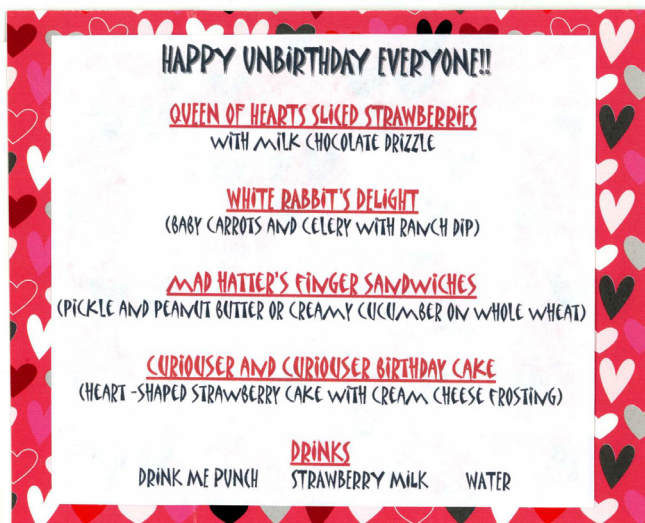 HAPPY UNBIRTHDAY EVERYONE!!
QUEEN OF HEARTS SLICED STRAWBERRIES
WITH MILK CHOCOLATE DRIZZLE
WHITE RABBIT'S DELIGHT
(BABY CARROTS AND CELERY WITH RANCH DIP)
MAD HATTER'S FINGER SANDWICHES
(PICKLE AND PEANUT BUTTER OR CREAMY CUCUMBER ON WHOLE WHEAT)
CURIOUSER AND CURIOUSER BIRTHDAY CAKE
(HEART -SHAPED STRAWBERRY CAKE WITH CREAM CHEESE FROSTING)
DRINKS
DRINK ME PUNCH STRAWBERRY MILK WATER